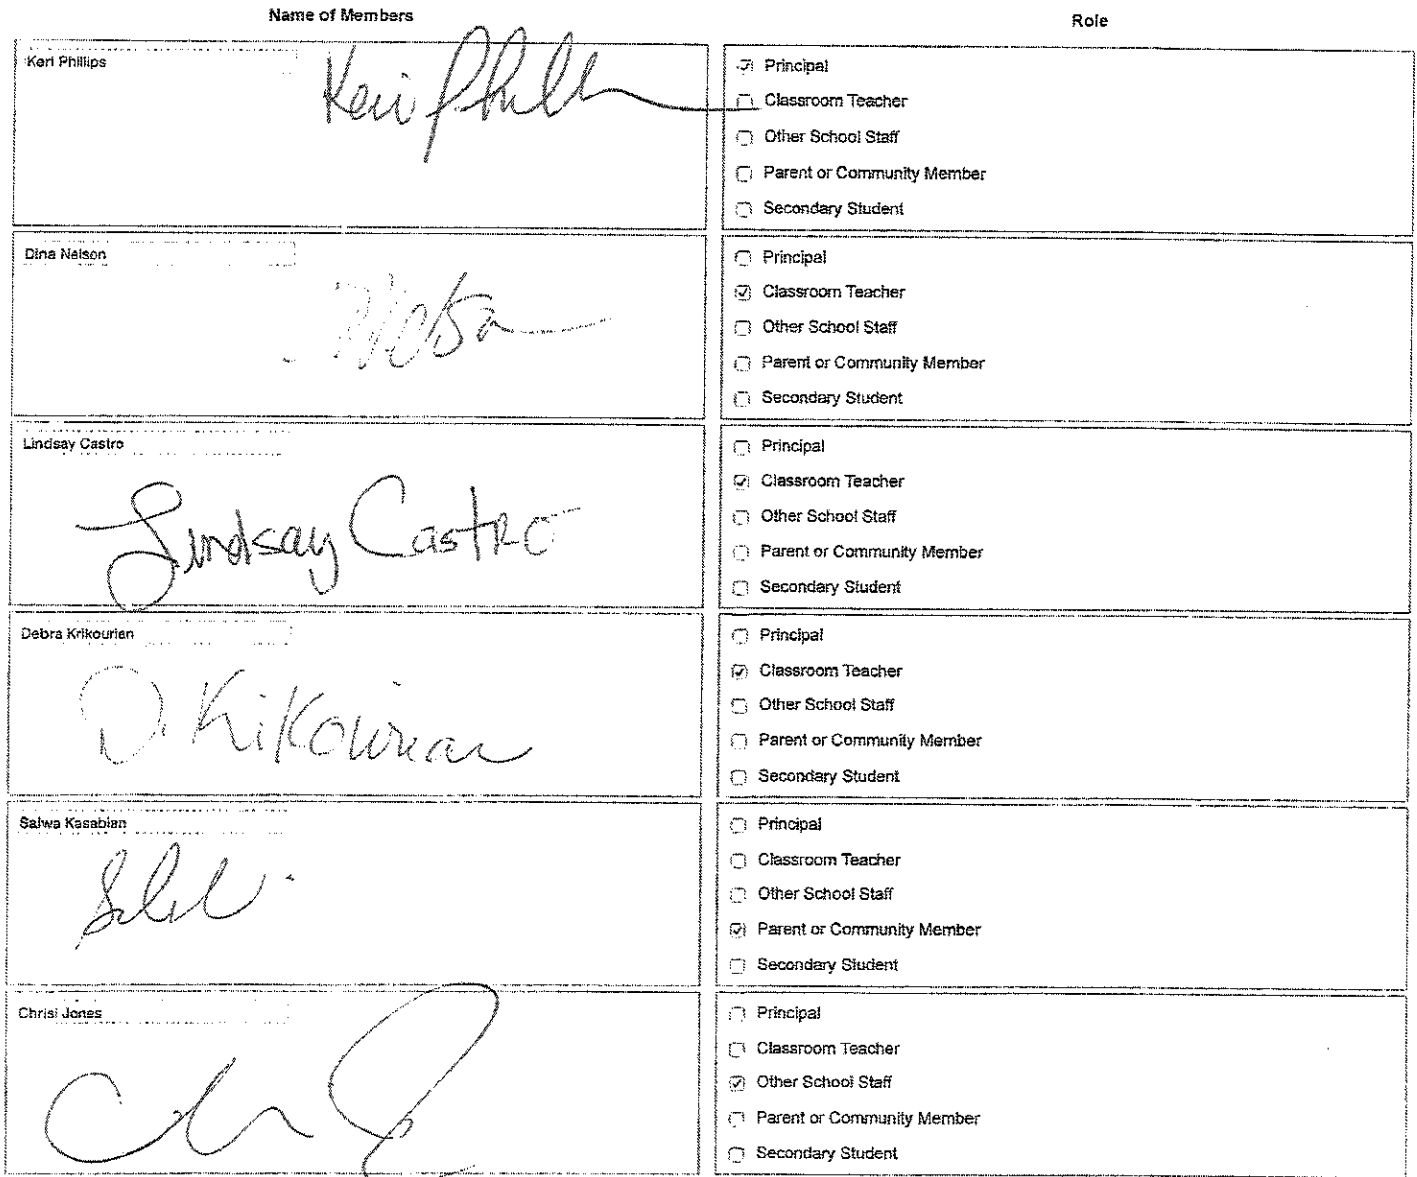 Name of Members
Role
Keri Phillips
Keri Phillips
Principal
Classroom Teacher
Other School Staff
Parent or Community Member
Secondary Student
Dina Nelson
Principal
Classroom Teacher
Other School Staff
Parent or Community Member
Secondary Student
Lindsay Castro
Lindsay Castro
Principal
Classroom Teacher
Other School Staff
Parent or Community Member
Secondary Student
Debra Krikourian
D. Krikourian
Principal
Classroom Teacher
Other School Staff
Parent or Community Member
Secondary Student
Salwa Kasabian
Principal
Classroom Teacher
Other School Staff
Parent or Community Member
Secondary Student
Chrisi Jones
Principal
Classroom Teacher
Other School Staff
Parent or Community Member
Secondary Student